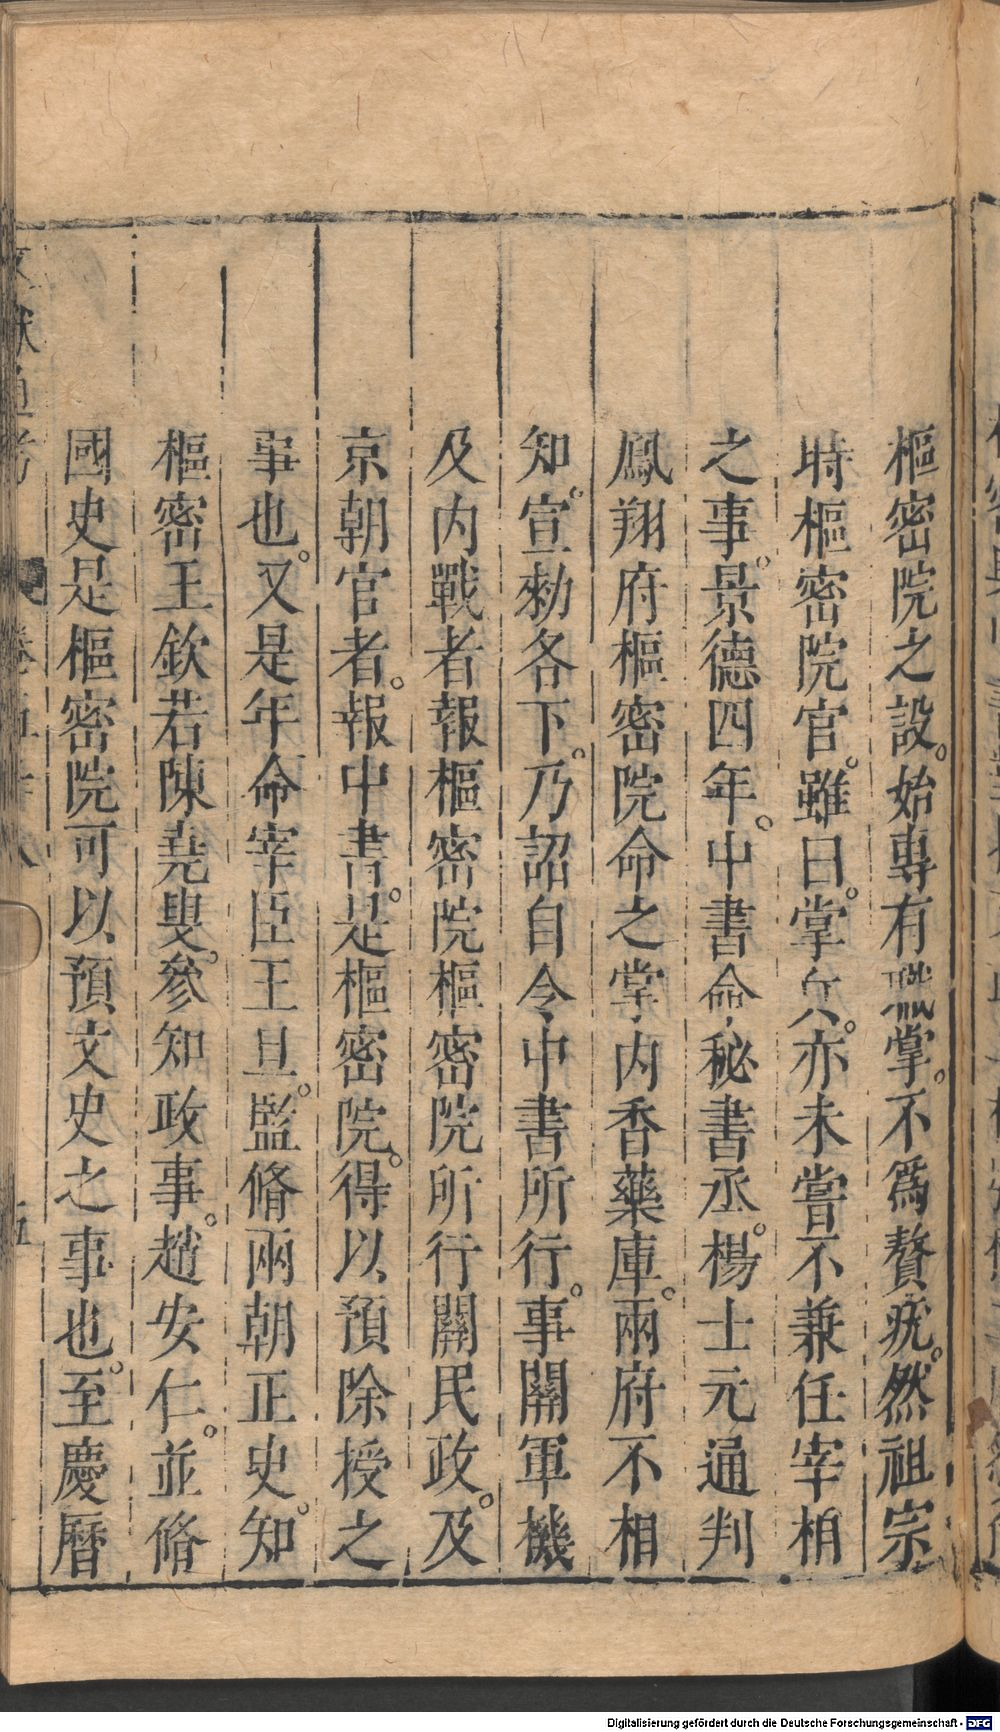 樞密院之設。始專有職掌。不爲贅疣。然祖宗
時樞密院官。雖曰。掌兵。亦未嘗不兼任宰相
之事。景德四年。中書命秘書丞。楊士元通判
鳳翔府樞密院命之掌内香藥庫。兩府不相
知。宣勑各下。乃詔自今中書所行。事關軍機
及内戰者報樞密院樞密院所行關民政。及
京朝官者。報中書。是樞密院。得以預除授之
事也。又是年命宰臣王旦。監脩兩朝正史。知
樞密王欽若陳堯叟。參知政事。趙安仁。並脩
國史是樞密院可以預文史之事也。至慶曆
文獻通考 卷五十八 五
Digitalisierung gefördert durch die Deutsche Forschungsgemeinschaft - DFG